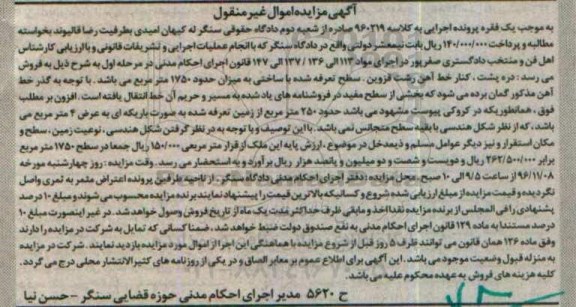 آگهی مزایده اموال غیر منقول
به موجب یک فقره پرونده اجرایی به کلاسه ۹۶۰۲۱۹ صادره از شعبه دوم دادگاه حقوقی سنگر له کیهان امیدی بطرفیت رضا قالیوند بخواسته
مطالبه و پرداخت ۱۴۰/۰۰۰/۰۰۰ ریال بابت نیمعشر دولتی واقع در دادگاه سنگر که با انجام عملیات اجرایی و تشریفات قانونی و با ارزیابی کارشناس
اهل فن و منتخب دادگستری صفرپور در اجرای مواد ۱۱۳ الی ۱۳۶ / ۱۳۷ الی ۱۴۷ قانون اجرای احکام مدنی در مرحله اول به شرح ذیل به فروش
می رسد : دره پشت ، کنار خط آهن رشت قزوین . سطح تعرفه شده با ساختی به میزان حدود ۱۷۵۰ متر مربع می باشد . با توجه به گذر خط
آهن مذکور گمان برده می شود که بخشی از سطح مفید در فروشنامه های یاد شده به مسیر و حریم آن خط انتقال یافته است . افزون بر مطلب
فوق ، همانطوریکه در کروکی پیوست مشهود می باشد حدود ۲۵۰ متر مربع از زمین تعرفه شده به صورت باریکه ای به عرض ۴ متر مربع می
باشد ، که از نظر شکل هندسی با بقیه سطح متجانس نمی باشد . با این توصیف و با توجه به در نظر گرفتن شکل هندسی ، نوعیت زمین ، سطح و
مکان استقرار و نیز دیگر عوامل مسلم و ذیمدخل در موضوع ، ارزش پایه این ملک از قرار متر مربعی ۱۵۰/۰۰۰ ریال جمعا در سطح ۱۷۵۰ متر مربع
برابر ۲۶۲/۵۰۰/۰۰۰ ریال و دویست و شصت و دو میلیون و پانصد هزار ریال برآورد و به استحضار می رسد . وقت مزایده : روز چهارشنبه مورخه
۹۶/۱۱/۰۸ از ساعت ۹/۵ الی ۱۰ صبح . محل مزایده : دفتر اجرای احکام مدنی دادگاه سنگر . از ناحیه طرفین پرونده اعتراض مثمر به ثمری واصل
نگردیده و قیمت مزایده از مبلغ ارزیابی شده شروع و کسانیکه بالاترین قیمت را پیشنهاد نمایند برنده مزایده محسوب می شوند و مبلغ ۱۰ درصد
پشنهادی را فی المجلس از برنده مزایده نقدا اخذ و مابقی ظرف حداکثر مدت یک ماه از تاریخ فروش وصول خواهد شد . در غیر اینصورت مبلغ ۱۰
درصد مستندا به ماده ۱۲۹ قانون اجرای احکام مدنی به نفع صندوق دولت ضبط خواهد شد . ضمنا کسانی که تمایل به شرکت در مزایده را دارند
وفق ماده ۱۲۶ همان قانون می توانند ظرف ۵ روز قبل از شروع مزایده با هماهنگی این اجرا از اموال مورد مزایده بازدید نمایند . شرکت در مزایده
به منزله قبول وضعیت موجود می باشد . این آگهی برای اطلاع عموم بر معابر الصاق و در یکی از روزنامه های کثیرالانتشار محلی درج می گردد .
کلیه هزینه های فروش به عهده محکوم علیه می باشد .
ح ۵۶۲۰ مدیر اجرای احکام مدنی حوزه قضایی سنگر – حسن نیا